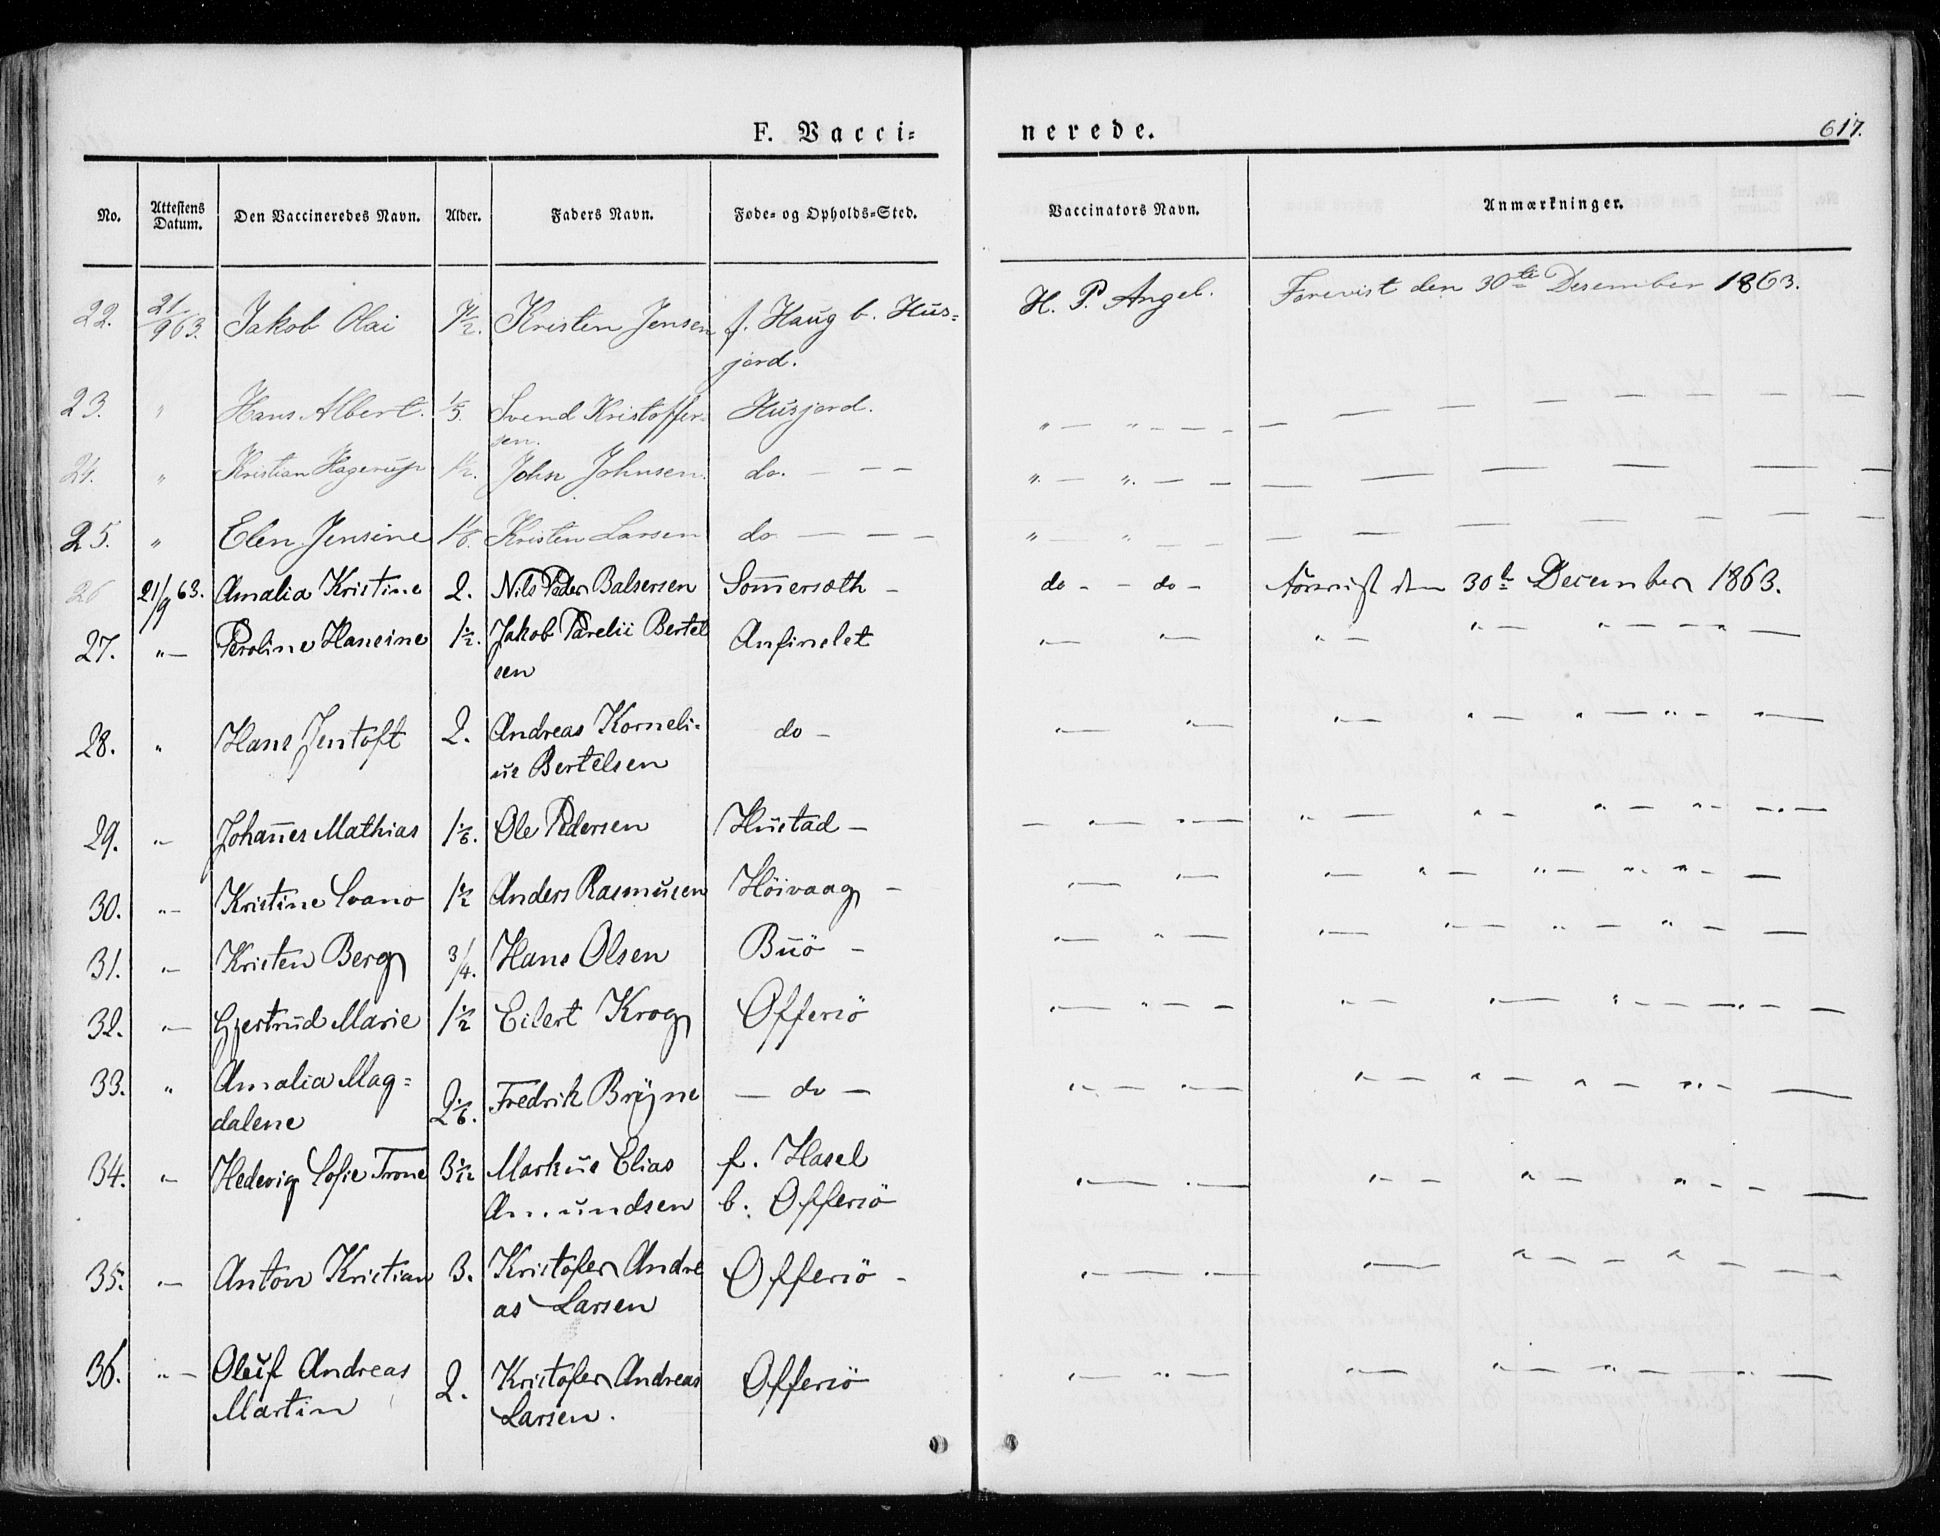 F. Vacci=
nerede.
617.
No. Attestens Datum. Den Vaccineredes Navn. Alder. Faders Navn. Føde- og Opholds-Sted. Vaccinators Navn. Anmærkninger.
22. 21/9 63. Jakob Olai 1/2. Kristen Jensen f. Haug b. Hus= H. P. Angel. Forevist den 30te Desember 1863.
jord.
23. " Hans Albert. Svend Kristoffer- Husjord. " — " — — — — — — — — — —
sen.
24. " Kristian Hagerup 1/2. John Johnsen. do. — — — " — " — — — — — — — —
25. " Elen Jensine Kristen Larsen do — — — " — " — — — — — — — —
26 21/9 63. Amalia Kristine 2. Nils Peder Balsersen Sommersæth — do - - do - Forevist den 30te December 1863.
27. " — Peroline Hansine 1 1/2. Jakob Parelii Bertel " — " — " — " — " — — " —
sen
28. " Hans Jentoft 2. Andreas Korneli= do — " — " — " — " — " — " — " —
us Bertelsen
29. " — Johannes Mathias 1 1/6. Ole Pedersen Hustad — — " — " — " — " — " — " — " —
30. " — Kristine Svano 1 1/2 Anders Rasmusen Höivaag — " — " — " — " — " — " — " —
31. " — Kristen Berg 3/4. Hans Olsen Buö — " — " — " — " — " — " — " —
32. " — Gjertrud Marie 1 1/2 Eilert Krog Offersö " — " — — " — " — " — — " —
33. " Amalia Mag= 2 1/6. Fredrik Bryne — do — " — " — " — " — " — " —
dalene
34. " — Hedevig Sofie Trone 3 1/12 Markus Elias f. Hasel " — " — " — — " — " — — —
Amundsen b. Offersö
35. " — Anton Kristian 3. Kristofer Andre Offersö — " — " — " — " — " — — —
as Larsen
36. " — Oluf Andreas 2. Kristofer Andreas Offersö " — " — " — " — " — " —
Martin Larsen.